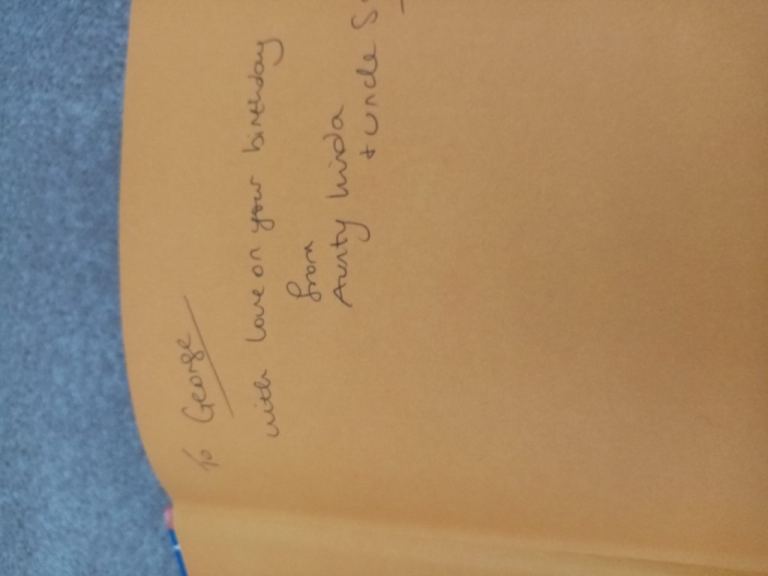 To George
with love on your birthday
from
Aunty Linda
+ Uncle